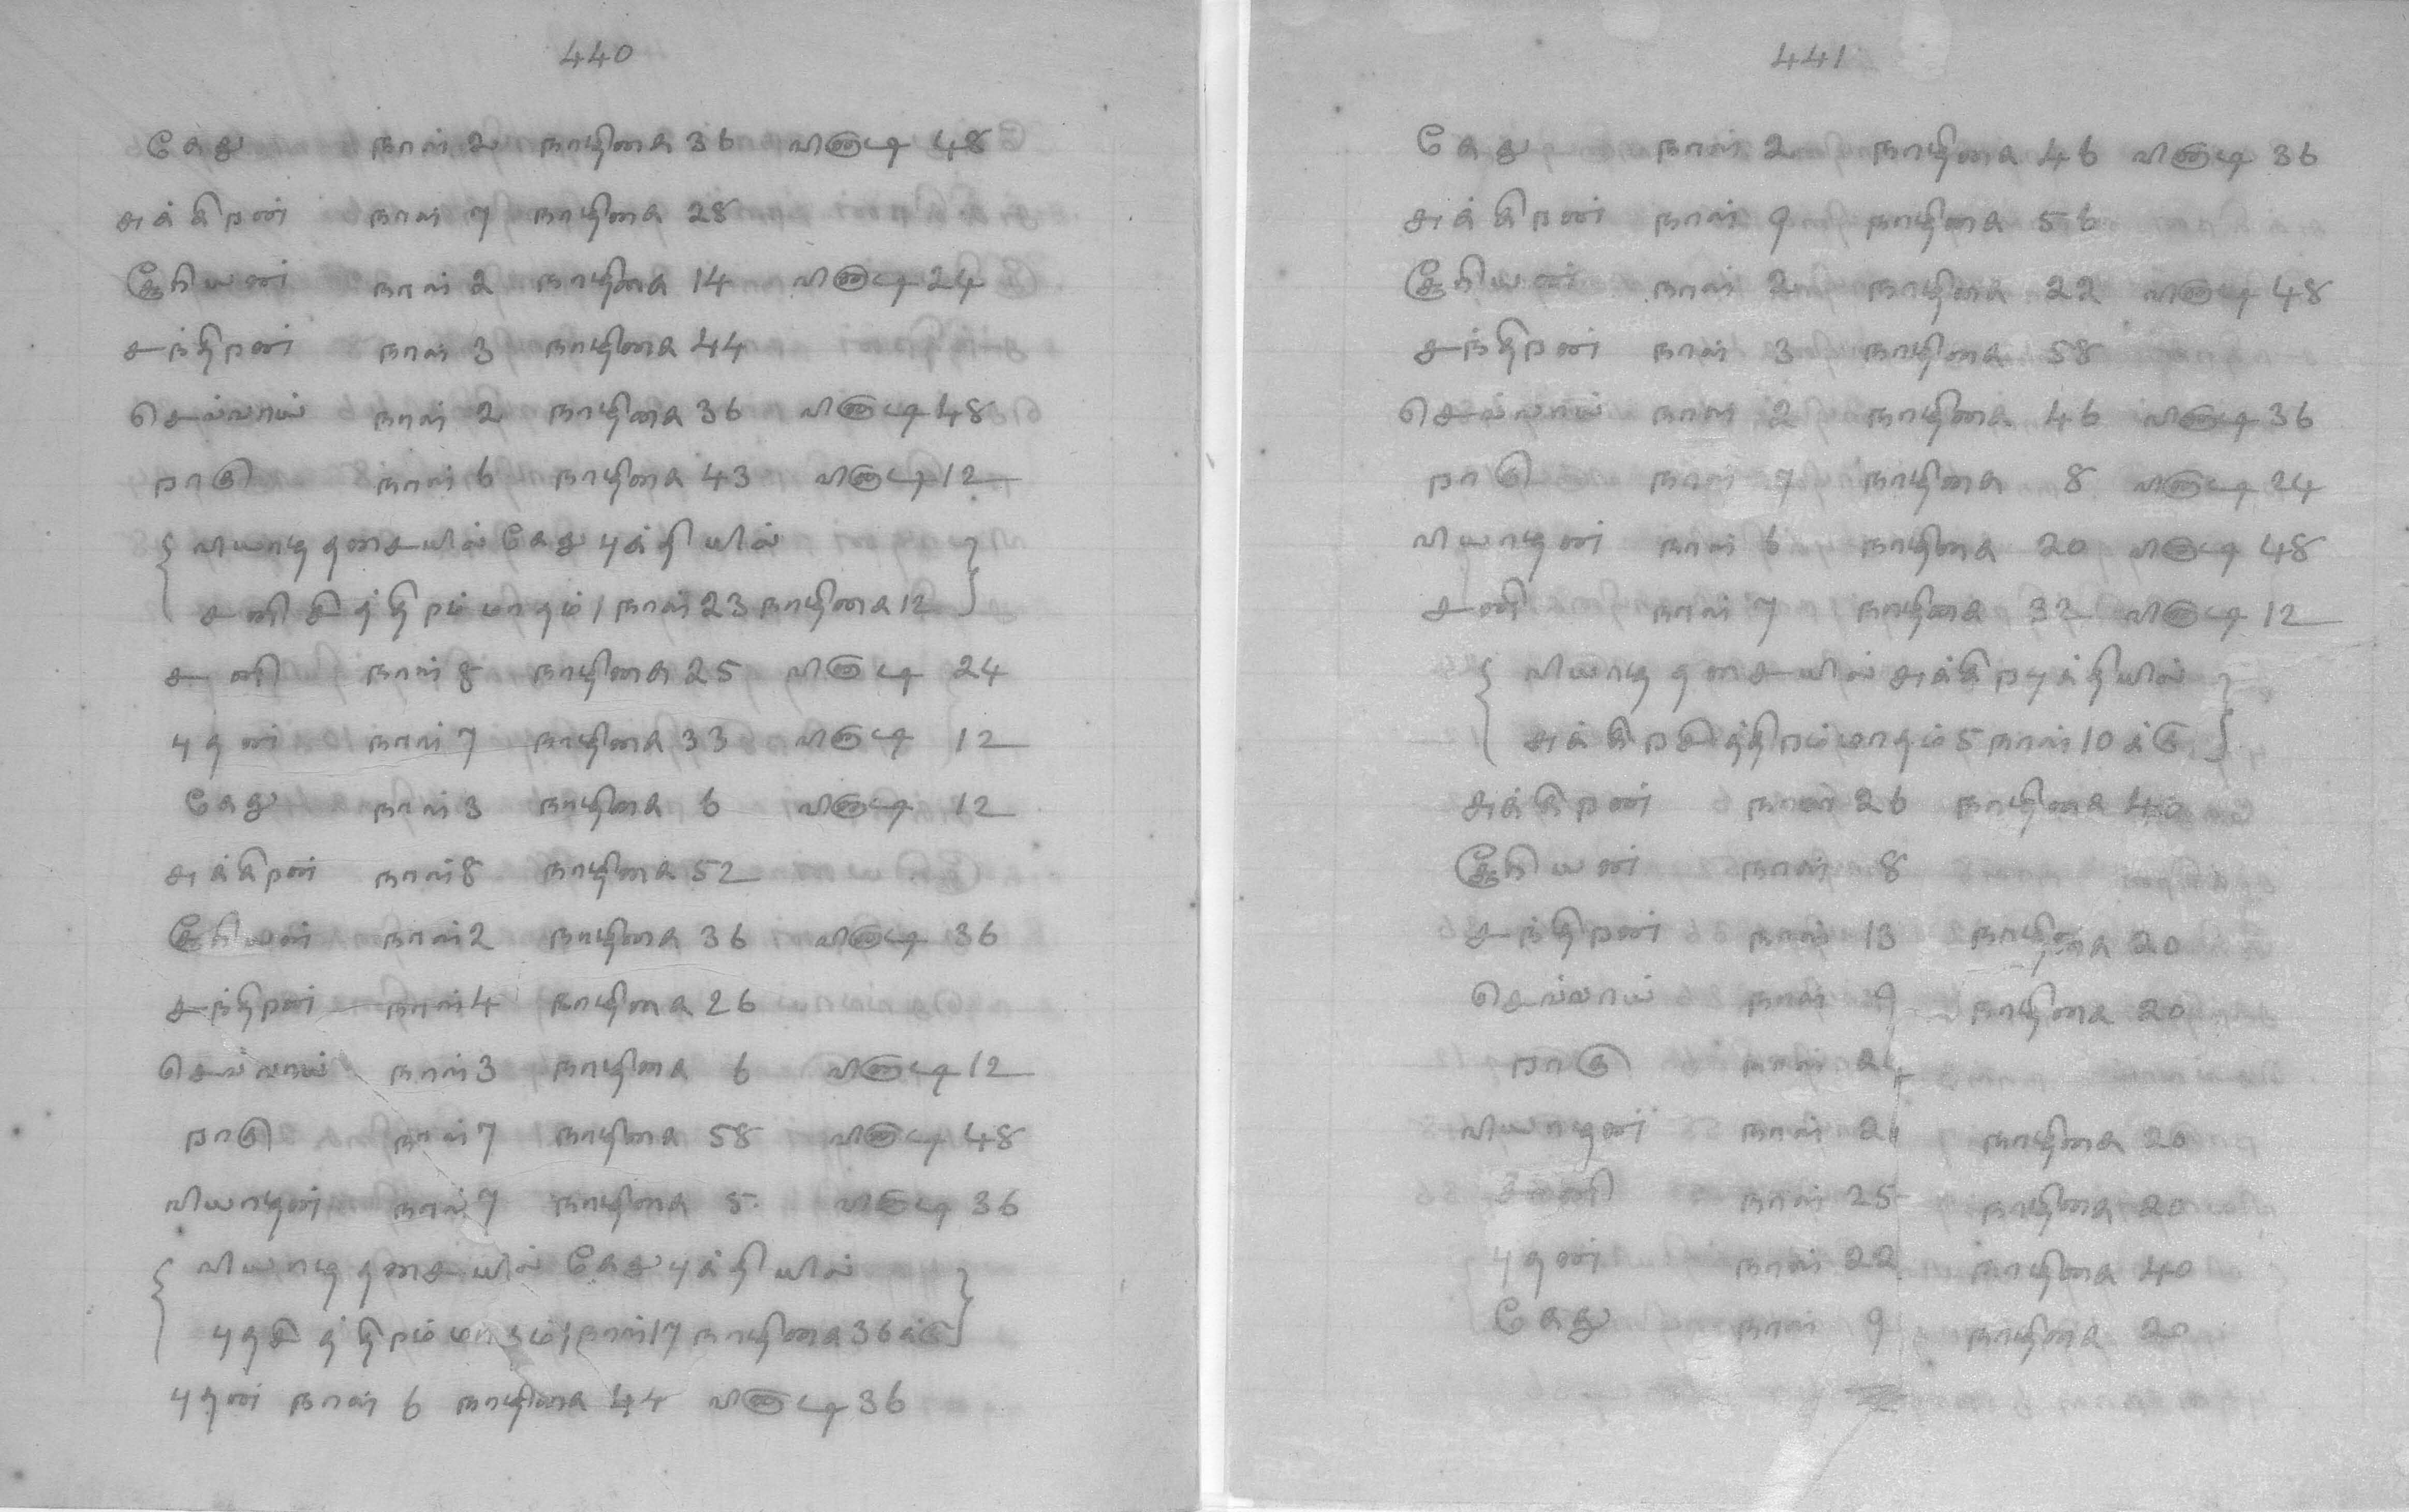 440
கேது நாள் 2 நாழிகை 36 வினாடி 48
சுக்கிறன் நாள் 7 நாழிகை 28
சூரியன் நாள் 2 நாழிகை 14 வினாடி 24
சந்திறன் நாள் 3 நாழிகை 44
செவ்வாய் நாள் 2 நாழிகை 36 வினாடி 48
றாகு நாள் 6 நாழிகை 43 வினாடி 12
{ வியாழ தசையில் கேது புக்தியில் }
சனி சித்திறம் மாதம் 1 நாள் 23 நாழிகை 12
சனி நாள் 8 நாழிகை 25 வினாடி 24
புதன் நாள் 7 நாழிகை 33 வினாடி 12
கேது நாள் 3 நாழிகை 6 வினாடி 12
சுக்கிறன் நாள் 8 நாழிகை 52
சூரியன் நாள் 2 நாழிகை 36 வினாடி 36
சந்திறன் நாள் 4 நாழிகை 26
செவ்வாய் நாள் 3 நாழிகை 6 வினாடி 12
றாகு நாள் 7 நாழிகை 58 வினாடி 48
வியாழன் நாள் 7 நாழிகை 5 வினாடி 36
{ வியாழ தசையில் கேது புக்தியில் }
புதசித்திறம் மாதம் 1 நாள் 17 நாழிகை 36 க்கு
புதன் நாள் 6 நாழிகை 44 வினாடி 36
441
கேது நாள் 2 நாழிகை 46 வினாடி 36
சுக்கிறன் நாள் 9 நாழிகை 56
சூரியன் நாள் 2 நாழிகை 22 வினாடி 48
சந்திறன் நாள் 3 நாழிகை 58
செவ்வாய் நாள் 2 நாழிகை 46 வினாடி 36
றாகு நாள் 7 நாழிகை 8 வினாடி 24
வியாழன் நாள் 6 நாழிகை 20 வினாடி 48
சனி நாள் 7 நாழிகை 32 வினாடி 12
{ வியாழ தசையில் சுக்கிற புக்தியில் }
சுக்கிறசித்திறம் மாதம் 5 நாள் 10 க்கு
சுக்கிறன் நாள் 26 நாழிகை 40
சூரியன் நாள் 8
சந்திறன் நாள் 13 நாழிகை 20
செவ்வாய் நாள் 9 நாழிகை 20
றாகு நாள் 24
வியாழன் நாள் 21 நாழிகை 20
சனி நாள் 25 நாழிகை 20
புதன் நாள் 22 நாழிகை 40
கேது நாள் 9 நாழிகை 20